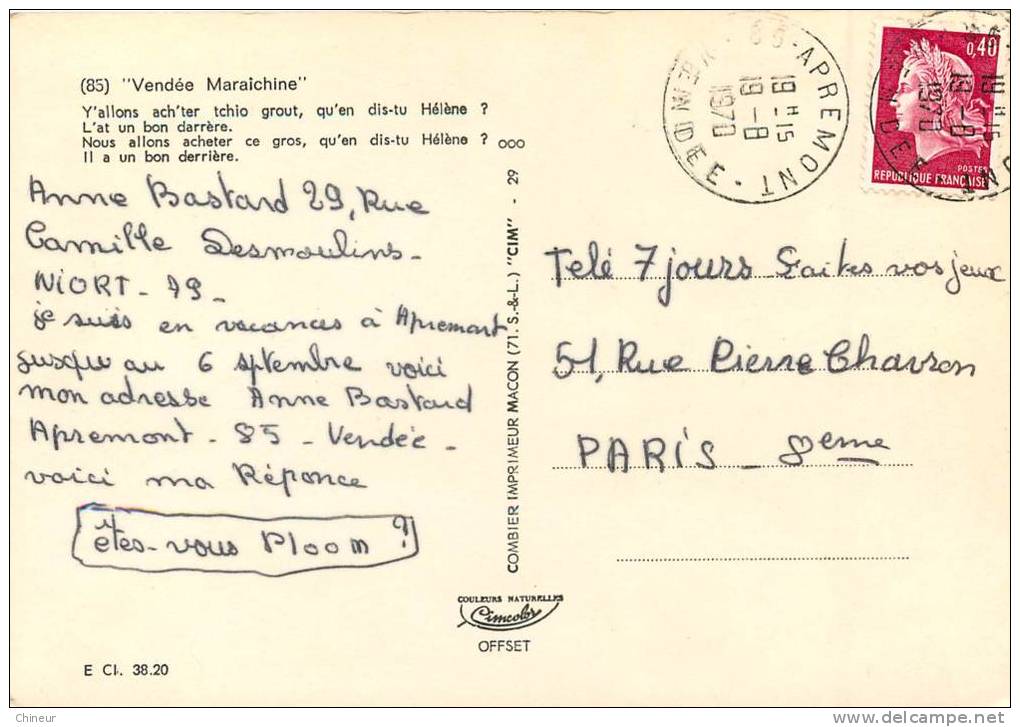 (85) "Vendée Maraîchine"
Y'allons ach'ter tchio grout, qu'en dis-tu Hélène ?
L'at un bon darrère.
Nous allons acheter ce gros, qu'en dis-tu Hélène ?
Il a un bon derrière.
Anne Bastard 29, Rue
Camille Desmoulins-
NIORT - 79 -
je suis en vacances à Apremont
jusqu'au 6 septembre voici
mon adresse Anne Bastard
Apremont - 85 - Vendée -
voici ma Réponce
êtes-vous Ploom ?
E CI. 38.20
COMBIER IMPRIMEUR MACON (71. S.-&-L.) "CIM" - 29
ooo
COULEURS NATURELLES
Cimcolor
OFFSET
85-APREMONT
19H-15
19-8
1970
VENDEE
0,40
POSTES
REPUBLIQUE FRANÇAISE
19H-15
19-8
1970
Telé 7 jours Faites vos jeux
51, Rue Pierre Charron
PARIS - 8eme
Chineur
delcampe.net